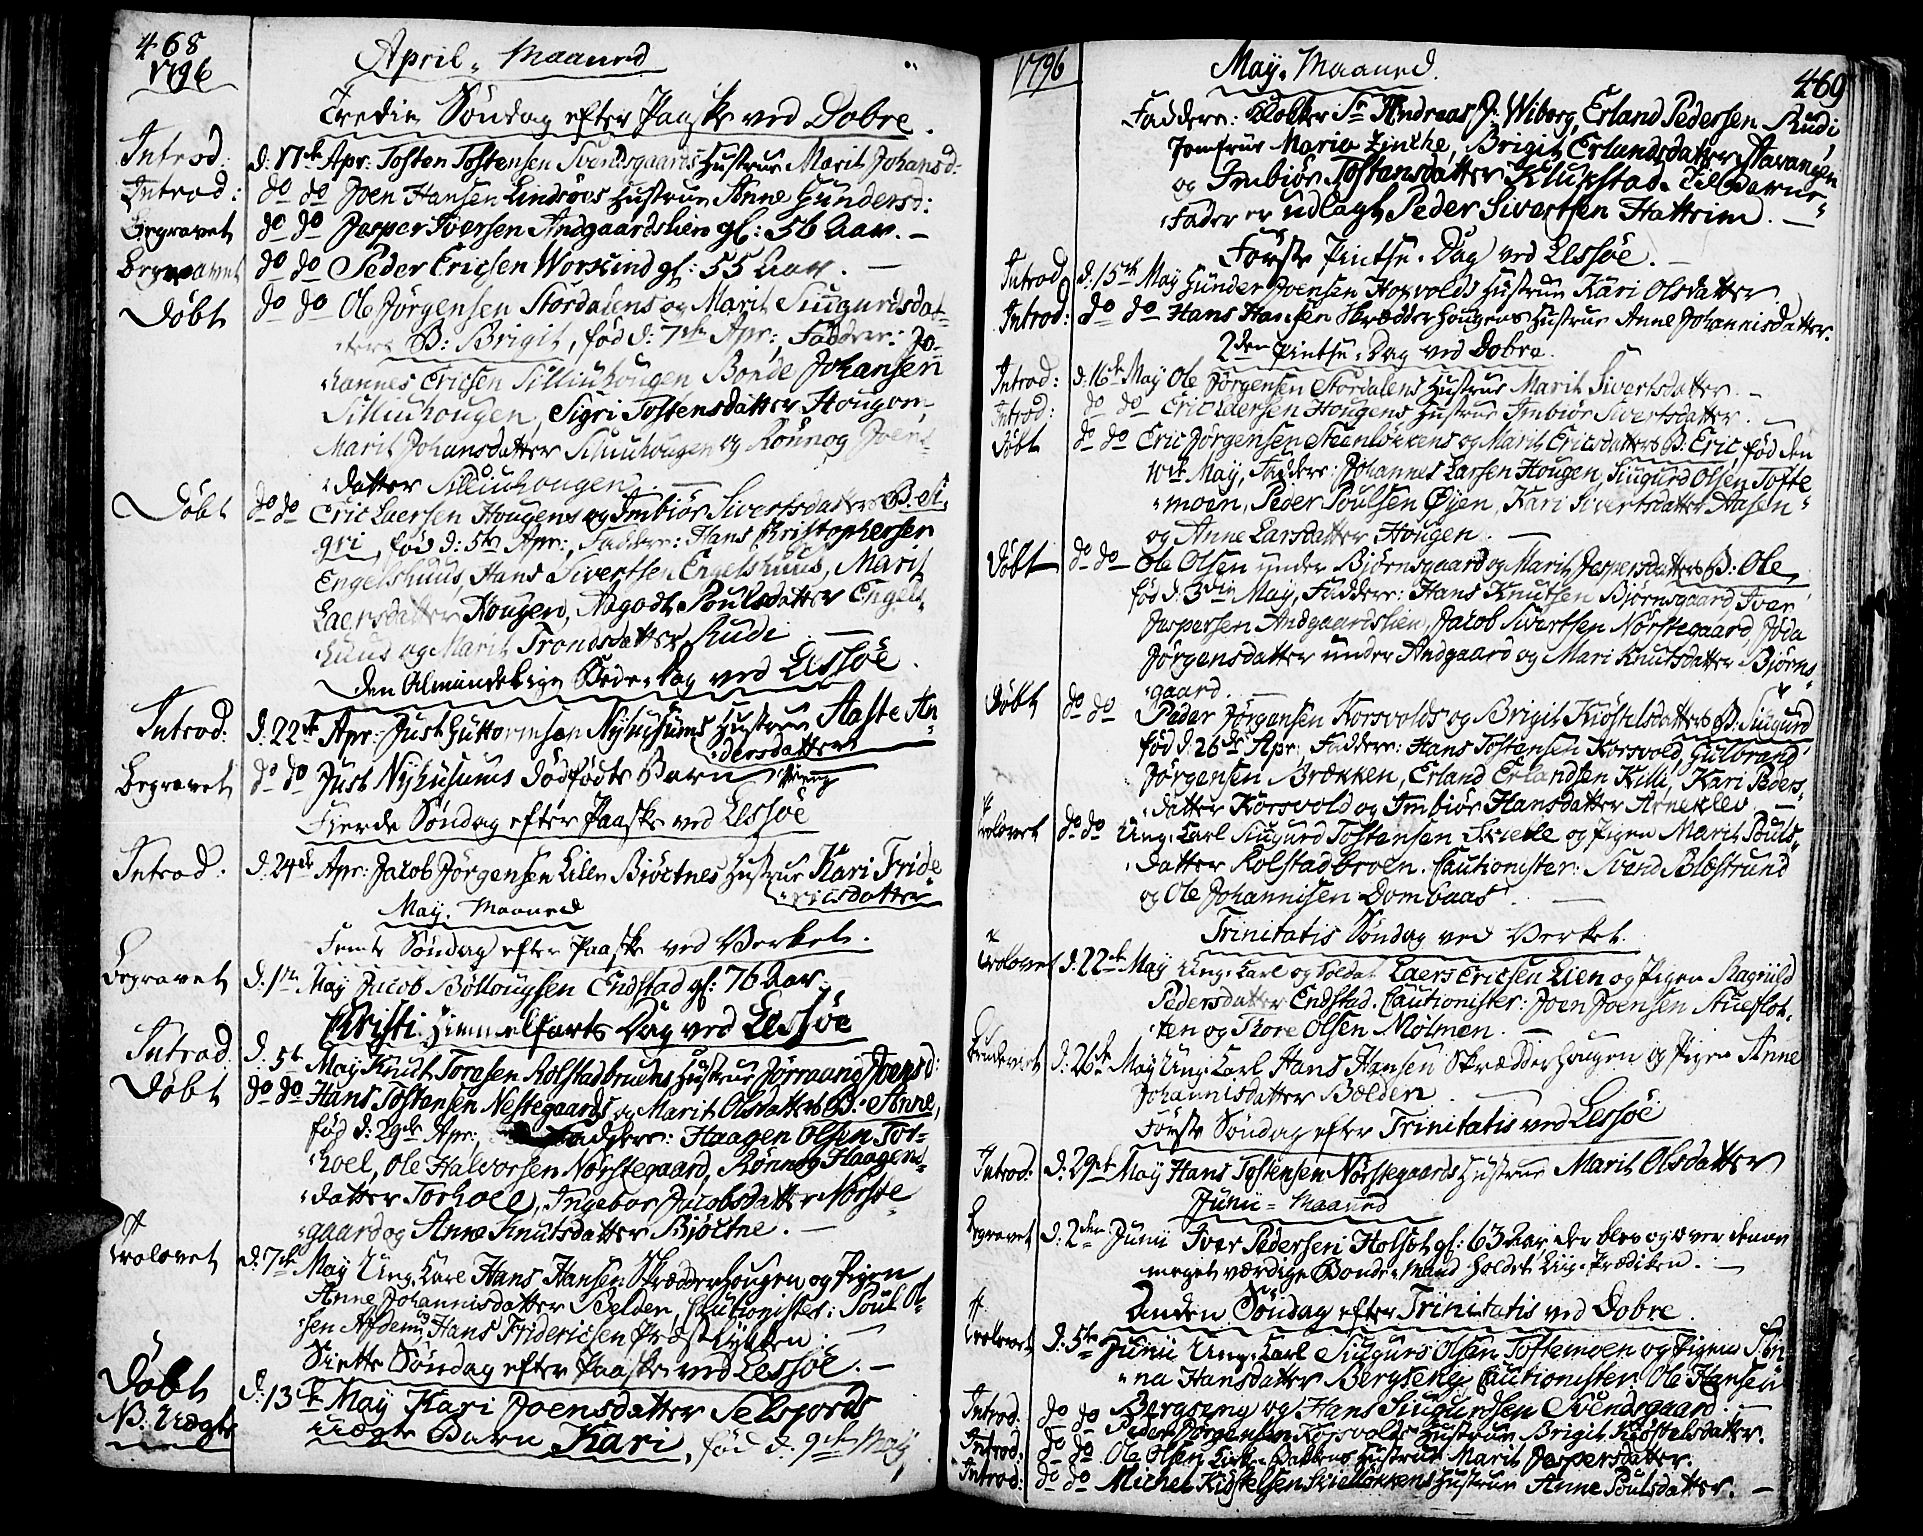 468
1796
April Maaned
Tredie Søndag efter Paaske ved Dobre.
Introd: d: 17de Apr: Tosten Tostensen Svendsgaards Hustrue Marit Johansd:
Introd: do do Joen Hansen Lindsøes Hustrue Anne Gundersd:
Begravet do do Jesper Iversen Andgaardslien gl: 56 Aar. —
Begravet do do Peder Ericsen Workind gl: 55 Aar. —
Døbt do do Ole Jørgensen Stordalens og Marit Siugurdsdat-
ters B: Brigit, fød d: 7de Apr: Faddere: Jo-
hannes Ericsen Silliuhougen Bonde Johansen
Silliuhougen, Sigri Tostensdatter Hougen,
Marit Johansdatter Silliuhougen og Rønnog Joens-
datter Silliuhougen. —
Døbt do do Eric Laersen Hougens og Imbiør Sivertsdatters B: Si-
gri, fød d: 5te Apr:, Faddere: Hans Christophersen
Engelshuus, Hans Sivertsen Engelshuus, Marit
Laersdatter Hougen, Aagodt Poulsdatter Engels-
huus og Marit Trondsdatter Rudi —
Den Almindelige Bede-Dag ved Lessøe.
Introd: d: 22de Apr: Just Guttormsen Nyhusums Hustrue Aaste An-
dersdatter
Begravet do do Just Nyhusums Dødfødte Barn
Fierde Søndag efter Paaske ved Lessøe
Introd: d: 24de Apr: Jacob Jørgensen Lille Biøctnes Hustrue Kari Fride-
ricsdatter
May Maaned
Femte Søndag efter Paaske ved Verket.
Begravet d: 1te May Jacob Bottougsen Endstad gl: 76 Aar.
Christi Himmelfarts Dag ved Lessøe
Introd: d: 5te May Knut Toresen Rolstadbruens Hustrue Jørraand Joensd:
Døbt do do Hans Tostensen Nestegaards og Marit Olsdatters B: Anne,
fød d: 29de Apr:, Faddere: Haagen Olsen Tor-
hoel, Ole Halvorsen Nørstegaard, Rønnog Haagens-
datter Torhoel, Ingebor Jacobsdatter Nørste-
gaard og Anne Knutsdatter Bjøctne. —
Trolovet d: 7de May Ung Karl Hans Hansen Skrædderhougen og Pigen
Anne Johannisdatter Belden, Cautionister: Poul Ol-
sen og Hans Fridericsen Præstløkken —
Siette Søndag efter Paaske ved Lessøe. —
Døbt d: 13de May Kari Joensdatter Selsjords
NB: Uægte uægte Barn Kari, fød d: 9de May
1796
May Maaned.
469
Faddere: Klokker Sr Andreas J: Wiborg, Erland Pedersen Rudi,
Jomfrue Maria Zinche, Brigit Erlandsdatter Stavangen
og Imbiør Tostensdatter Klukstad. Til Barne-
Fader er udlagt Peder Sivertsen Hattrim. —
Første Pintse-Dag ved Lessøe. —
Introd d: 15de May Gunder Joensen Horvolds Hustrue Kari Olsdatter
Introd: do do Hans Hansen Skrædderhougens Hustrue Anne Johannisdatter.
2den Pintse-Dag ved Dobre.
Introd: d: 16de May Ole Jørgensen Stordalens Hustrue Marit Sivertsdatter. —
Introd: do do Eric Laersen Hougens Hustrue Imbiør Sivertsdatter. —
Døbt do do Eric Jørgensen Steenløkkens og Marit Ericsdatters B: Eric, fød den
10de May, Faddere: Johannes Larsen Hougen, Siugurd Olsen Tofte-
moen, Peder Poulsen Øyen, Kari Sivertsdatter Aasen
og Anne Larsdatter Hougen. —
Døbt do do Ole Olsen under Biørnsgaard og Marit Jespersdatters B: Ole,
fød d: 3die May, Faddere: Hans Knutsen Bjørnsgaard, Iver
Jespersen Andgaardslien, Jacob Sivertsen Nørstegaard, Jøda
Jørgensdatter under Andgaard og Mari Knutsdatter Biørns-
gaard. —
Døbt do do Peder Jørgensen Korsvolds og Brigit Kiøstelsdatters B: Siugurd
fød d: 26de Apr: Faddere: Hans Tostensen Korsvold, Gulbrand
Jørgensen Brækken, Erland Erlandsen Killi, Kari Peders-
datter Korsvold og Imbiør Hansdatter Arneklev. —
Trolovet do do Ung Karl Siugurd Tostensen Skielle og Pigen Marit Pouls-
datter Rolstadbroen. Cautionister: Svend Blæstrund
og Ole Johannisen Dombaas —
Trinitatis Søndag ved Verket.
Trolovet d: 22de May Ung Karl og Soldat Laers Ericsen Lien og Pigen Ragnild
Pedersdatter Endstad. Cautionister: Joen Joensen Stueflot-
ten og Thore Olsen Mølmen. —
Brudeviet d: 26de May Ung Karl Hans Hansen Skrædderhougen og Pigen Anne
Johannisdatter Bælden. —
Første Søndag efter Trinitatis ved Lessøe
Introd: d: 29de May Hans Tostensen Nørstegaards Hustrue Marit Olsdatter
Junii Maaned
Begravet d: 2den Junii Iver Pedersen Holset gl: 63 Aar der blev og over denne
meget værdige Bonde-Mand holdet Liig-Prædiken. —
Anden Søndag efter Trinitatis ved Dobre
Trolovet d: 5te Junii Ung Karl Siugurd Olsen Toftemoen og Pigen An-
na Hansdatter Bergseng, Cautionister Ole Hansen
Bergseng og Hans Siugurdsen Svendsgaard. —
Introd: do do Peder Jørgensen Korsvolds Hustrue Brigit Kiøstelsdatter.
Introd: do do Ole Olsen Hustrue Marit Jespersdatter.
Introd: do do Michel Kiøstelsen Skielløkkens Hustrue Anne Poulsdatter. —